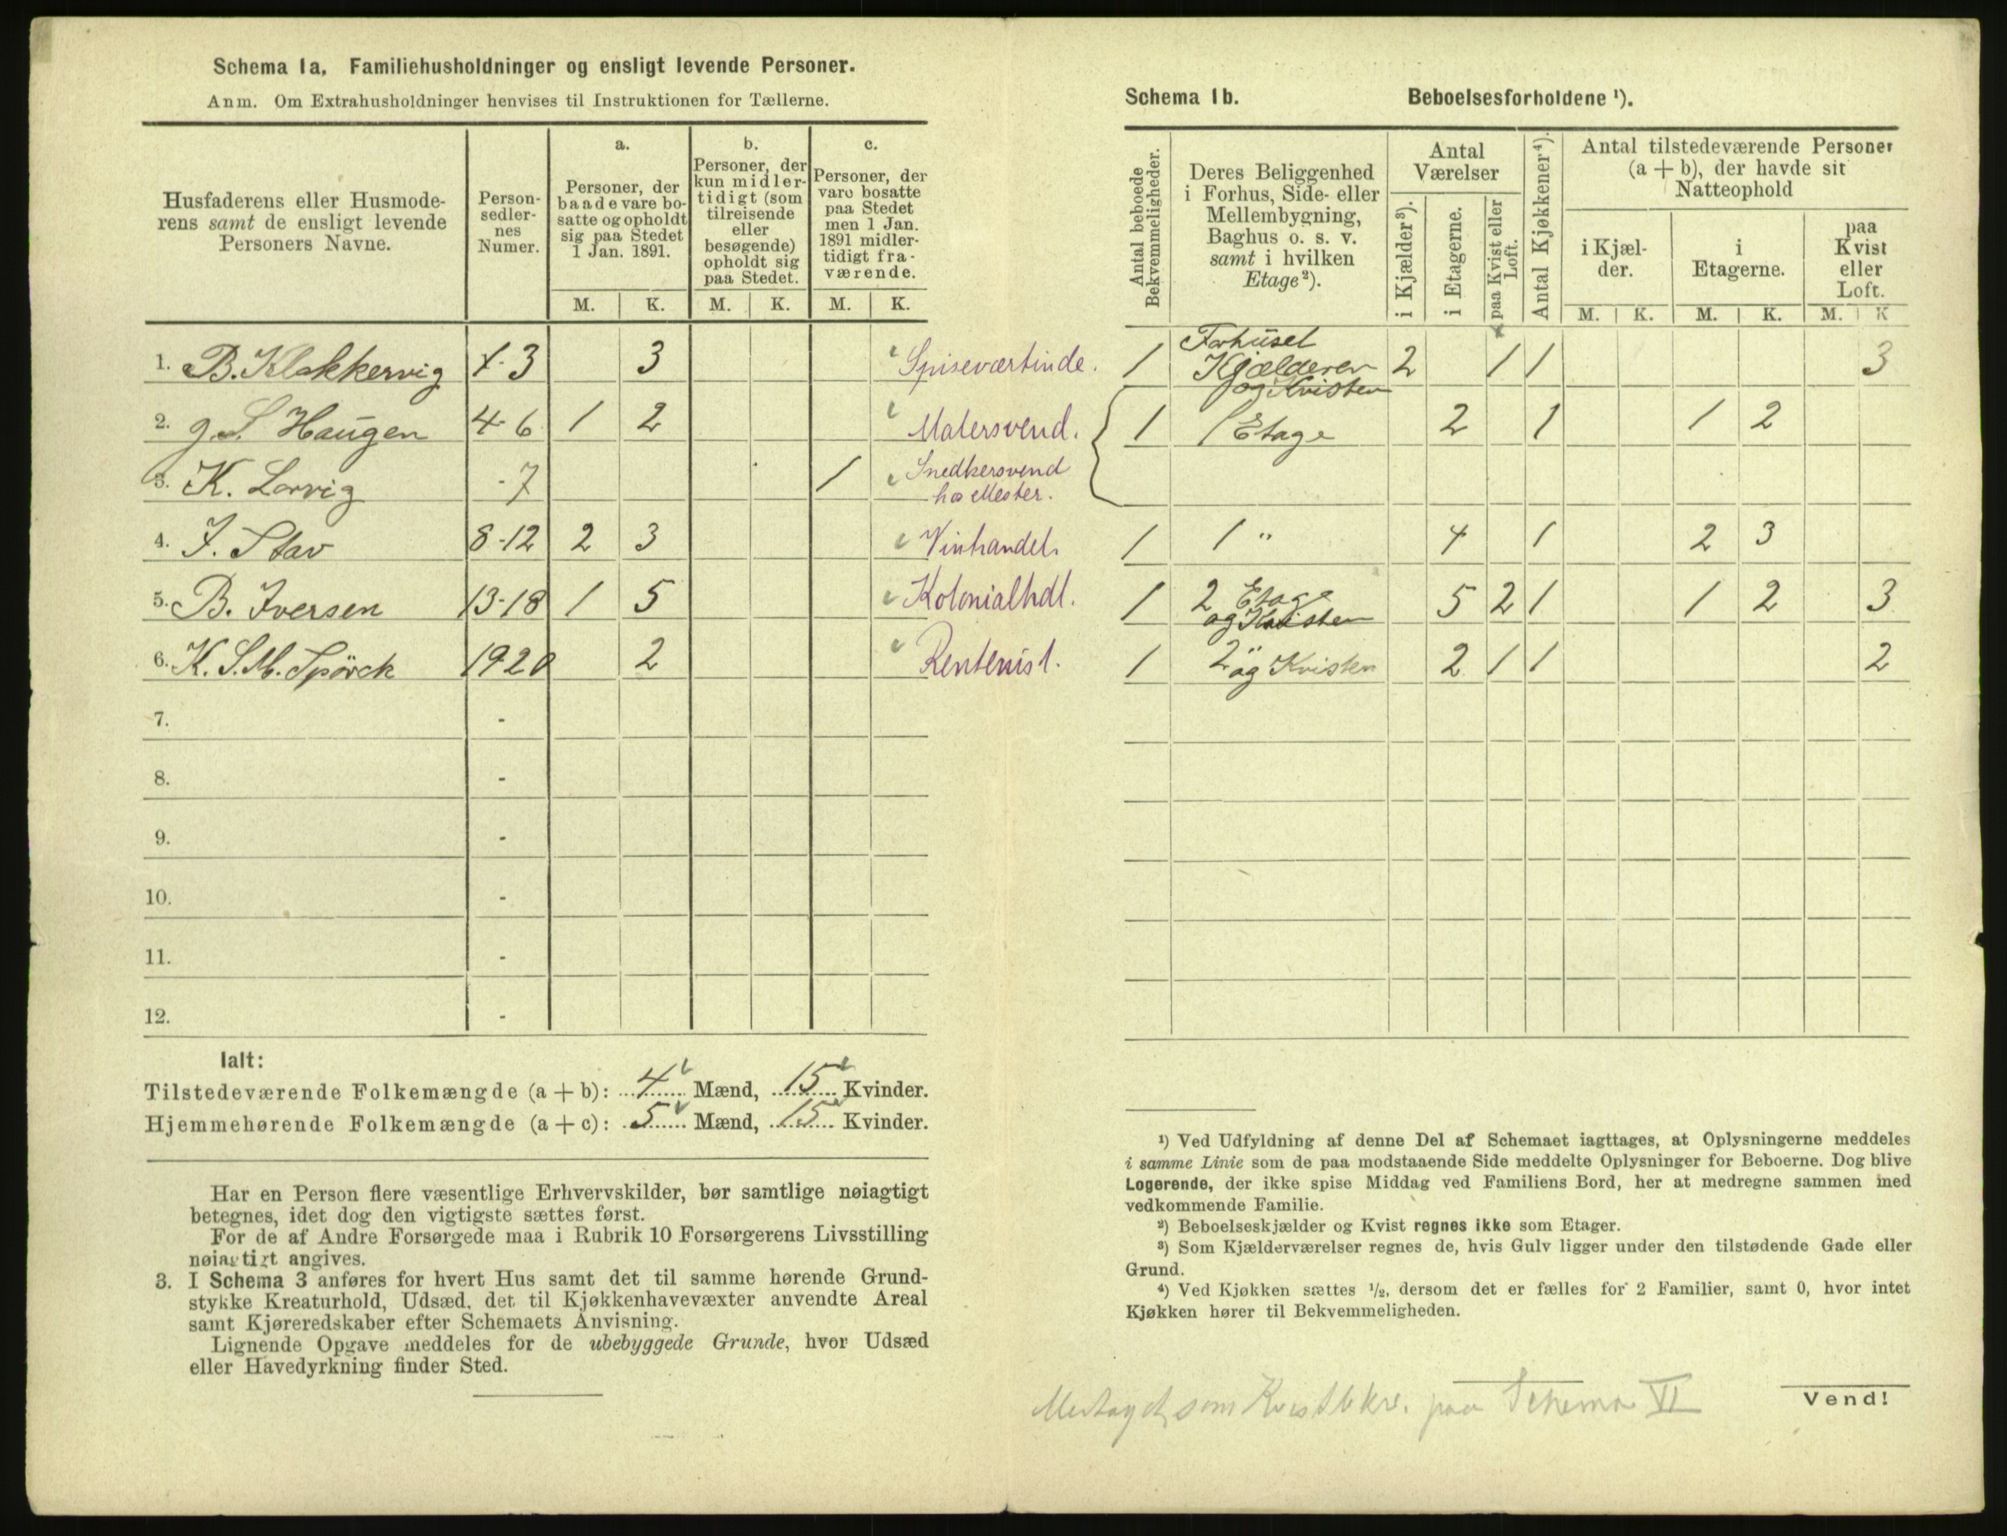 Schema 1a. Familiehusholdninger og ensligt levende Personer.
Anm. Om Extrahusholdninger henvises til Instruktionen for Tællerne.
Husfaderens eller Husmoderens samt de ensligt levende Personers Navne.
Personsedlernes Numer.
a. Personer, der baade vare bosatte og opholdt sig paa Stedet 1 Jan. 1891.
b. Personer, der kun midlertidigt (som tilreisende eller besøgende) opholdt sig paa Stedet.
c. Personer, der vare bosatte paa Stedet men 1 Jan. 1891 midlertidigt fraværende.
M. K. M. K. M. K.
1. B. Klokkervig 1-3 3 Spiseværtinde.
2. g. S. Haugen 4-6 1 2 Malersvend.
3. K. Larvig -7 1 Snedkersvend
hos Mester.
4. J. Stav 8-12 2 3 Vinhandel.
5. B. Iversen 13-18 1 5 Kolonialhdl.
6. K. S. M. Spörck 19 20 2 Rentenist.
7. -
8. -
9. -
10. -
11. -
12. -
Ialt:
Tilstedeværende Folkemængde (a + b): 4 Mænd, 15 Kvinder.
Hjemmehørende Folkemængde (a + c): 5 Mænd, 15 Kvinder.
Har en Person flere væsentlige Erhvervskilder, bør samtlige nøiagtigt
betegnes, idet dog den vigtigste sættes først.
For de af Andre Forsørgede maa i Rubrik 10 Forsørgerens Livsstilling
nøiagtigt angives.
3. I Schema 3 anføres for hvert Hus samt det til samme hørende Grund-
stykke Kreaturhold, Udsæd, det til Kjøkkenhavevæxter anvendte Areal
samt Kjøreredskaber efter Schemaets Anvisning.
Lignende Opgave meddeles for de ubebyggede Grunde, hvor Udsæd
eller Havedyrkning finder Sted.
Schema 1b. Beboelsesforholdene ¹).
Antal beboede Bekvemmeligheder.
Deres Beliggenhed i Forhus, Side- eller Mellembygning, Baghus o. s. v. samt i hvilken Etage²).
Antal Værelser
i Kjælder³). i Etagerne. paa Kvist eller Loft.
Antal Kjøkkener⁴).
Antal tilstedeværende Personer (a + b), der havde sit Natteophold
i Kjælder. i Etagerne. paa Kvist eller Loft.
M. K. M. K. M. K
1 Forhuset
Kjælderen
og Kvisten 2 1 1 3
1 1 Etage 2 1 1 2
1 1 " 4 1 2 3
1 2 Etage
og Kvisten 5 2 1 1 2 3
1 2 " og Kvisten 2 1 1 2
¹) Ved Udfyldning af denne Del af Schemaet iagttages, at Oplysningerne meddeles
i samme Linie som de paa modstaaende Side meddelte Oplysninger for Beboerne. Dog blive
Logerende, der ikke spise Middag ved Familiens Bord, her at medregne sammen med
vedkommende Familie.
²) Beboelseskjælder og Kvist regnes ikke som Etager.
³) Som Kjælderværelser regnes de, hvis Gulv ligger under den tilstødende Gade eller
Grund.
⁴) Ved Kjøkken sættes ½, dersom det er fælles for 2 Familier, samt 0, hvor intet
Kjøkken hører til Bekvemmeligheden.
Vend!
Medtaget som Kvistbekv. paa Schema VI